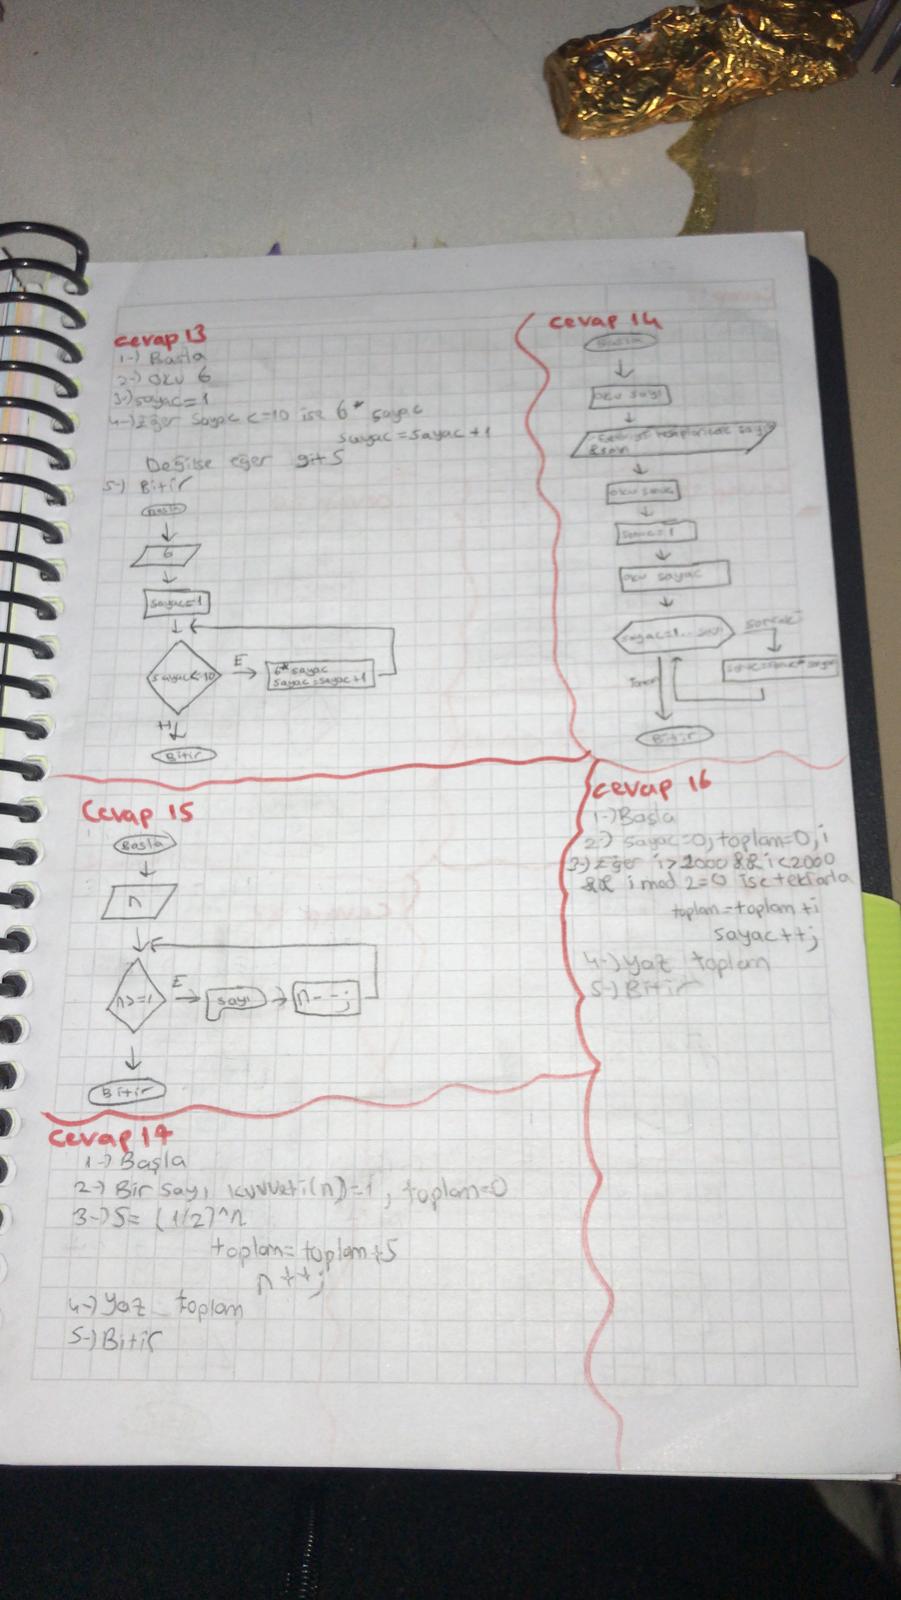 Cevap 13
1-) Başla
2-) Oku 6
3-) sayac=1
4-) Eğer sayac <=10 ise 6* sayac
sayac=sayac+1
Değilse eğer git 5
5-) Bitir
Başla
6
sayac=1
sayac<=10
E
6* sayac
sayac=sayac+1
H
Bitir
Cevap 14
Başla
oku sayi
oku sonuc
sonuc=1
oku sayac
sayac=1...
Bitir
Cevap 15
Başla
n
n>=1
E
sayı
n--;
Bitir
Cevap 16
1-) Başla
2-) sayac=0, toplam=0, i
3-) Eğer i>1000 && i<2000
&& i mod 2=0 ise tekrarla
toplam=toplam+i
sayac++;
4-) yaz toplam
5-) Bitir
Cevap 17
1-) Başla
2-) Bir sayı kuvveti(n)=1, toplam=0
3-) S= (1/2)^n
toplam= toplam+S
n++;
4-) yaz toplam
5-) Bitir